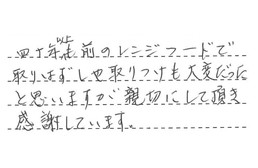 四十年等前のレンジフードで
取りはずしも取りつけも大変だった
と思いますが親切にして頂き
感謝しています。